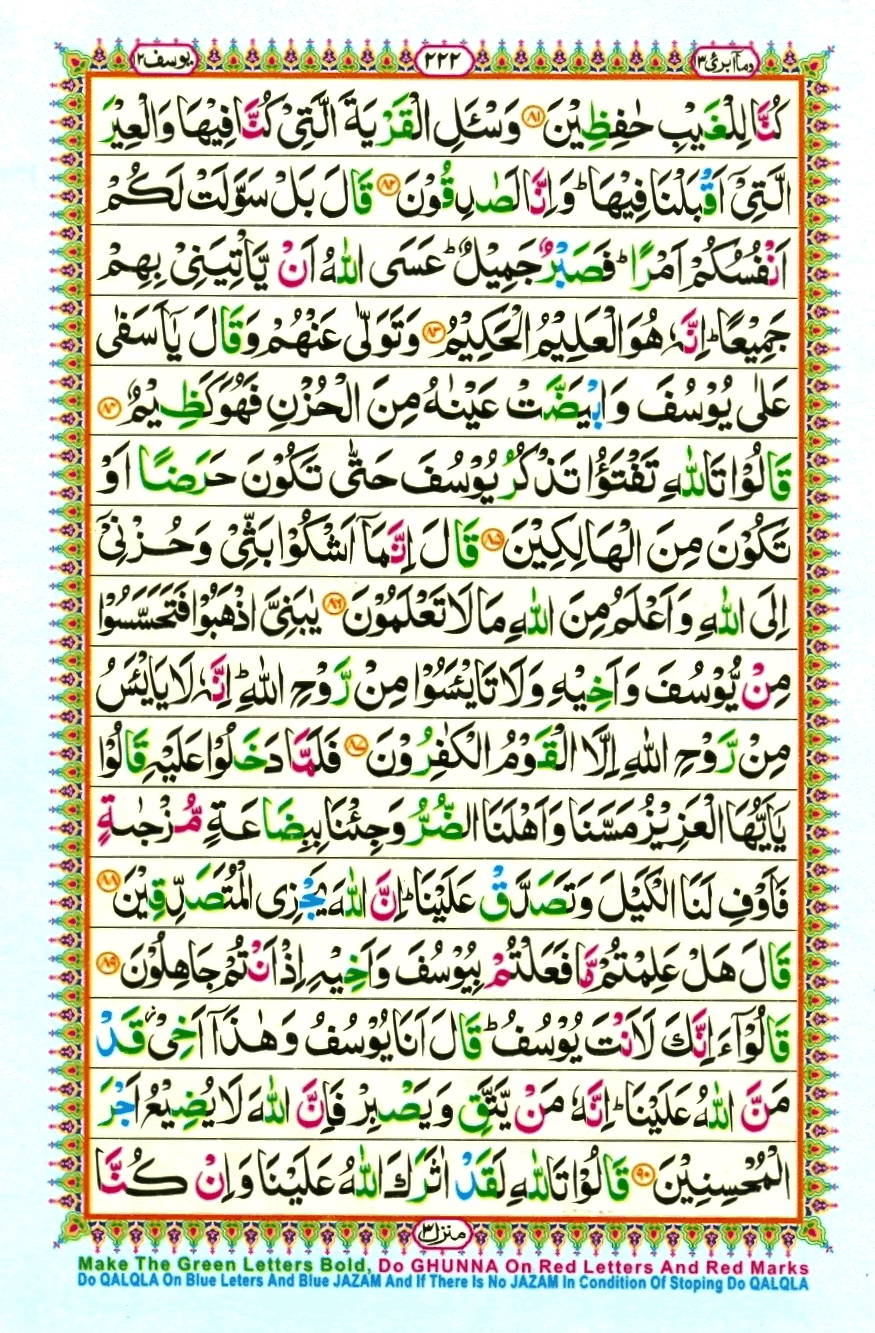 وما ابرئ ١٣ ٢٢٢ يوسف ١٢
كُنَّا لِلْغَيْبِ حٰفِظِيْنَ ﴿۸۱﴾ وَسْـَٔلِ الْقَرْيَةَ الَّتِىْ كُنَّا فِيْهَا وَالْعِيْرَ
الَّتِىْۤ اَقْبَلْنَا فِيْهَا ؕ وَاِنَّا لَصٰدِقُوْنَ ﴿۸۲﴾ قَالَ بَلْ سَوَّلَتْ لَكُمْ
اَنْفُسُكُمْ اَمْرًا ؕ فَصَبْرٌ جَمِيْلٌ ؕ عَسَى اللّٰهُ اَنْ يَّاْتِيَنِىْ بِهِمْ
جَمِيْعًا ؕ اِنَّهٗ هُوَ الْعَلِيْمُ الْحَكِيْمُ ﴿۸۳﴾ وَتَوَلّٰى عَنْهُمْ وَقَالَ يٰۤاَسَفٰى
عَلٰى يُوْسُفَ وَابْيَضَّتْ عَيْنٰهُ مِنَ الْحُزْنِ فَهُوَ كَظِيْمٌ ﴿۸۴﴾
قَالُوْا تَاللّٰهِ تَفْتَؤُا تَذْكُرُ يُوْسُفَ حَتّٰى تَكُوْنَ حَرَضًا اَوْ
تَكُوْنَ مِنَ الْهَالِكِيْنَ ﴿۸۵﴾ قَالَ اِنَّمَاۤ اَشْكُوْا بَثِّىْ وَحُزْنِىْۤ
اِلَى اللّٰهِ وَاَعْلَمُ مِنَ اللّٰهِ مَا لَا تَعْلَمُوْنَ ﴿۸۶﴾ يٰبَنِىَّ اذْهَبُوْا فَتَحَسَّسُوْا
مِنْ يُّوْسُفَ وَاَخِيْهِ وَلَا تَايْـَٔسُوْا مِنْ رَّوْحِ اللّٰهِ ؕ اِنَّهٗ لَا يَايْـَٔسُ
مِنْ رَّوْحِ اللّٰهِ اِلَّا الْقَوْمُ الْكٰفِرُوْنَ ﴿۸۷﴾ فَلَمَّا دَخَلُوْا عَلَيْهِ قَالُوْا
يٰۤاَيُّهَا الْعَزِيْزُ مَسَّنَا وَاَهْلَنَا الضُّرُّ وَجِئْنَا بِبِضَاعَةٍ مُّزْجٰىةٍ
فَاَوْفِ لَنَا الْكَيْلَ وَتَصَدَّقْ عَلَيْنَا ؕ اِنَّ اللّٰهَ يَجْزِى الْمُتَصَدِّقِيْنَ ﴿۸۸﴾
قَالَ هَلْ عَلِمْتُمْ مَّا فَعَلْتُمْ بِيُوْسُفَ وَاَخِيْهِ اِذْ اَنْتُمْ جَاهِلُوْنَ ﴿۸۹﴾
قَالُوْۤا ءَاِنَّكَ لَاَنْتَ يُوْسُفُ ؕ قَالَ اَنَا يُوْسُفُ وَهٰذَاۤ اَخِىْ قَدْ
مَنَّ اللّٰهُ عَلَيْنَا ؕ اِنَّهٗ مَنْ يَّتَّقِ وَيَصْبِرْ فَاِنَّ اللّٰهَ لَا يُضِيْعُ اَجْرَ
الْمُحْسِنِيْنَ ﴿۹۰﴾ قَالُوْا تَاللّٰهِ لَقَدْ اٰثَرَكَ اللّٰهُ عَلَيْنَا وَاِنْ كُنَّا
منزل ٣
Make The Green Letters Bold, Do GHUNNA On Red Letters And Red Marks
Do QALQLA On Blue Leters And Blue JAZAM And If There Is No JAZAM In Condition Of Stoping Do QALQLA